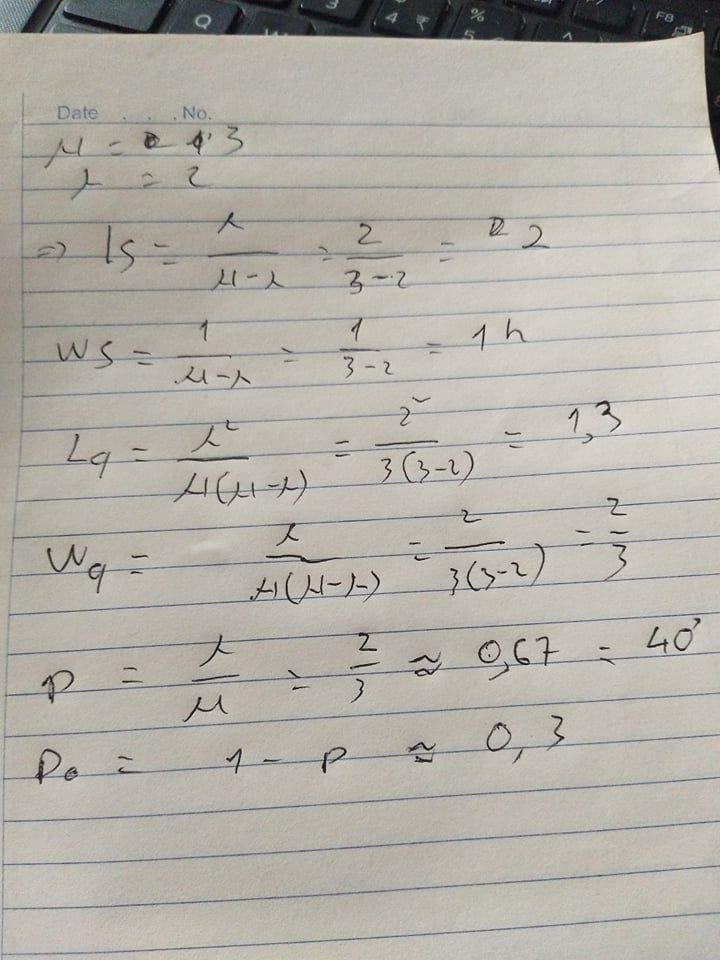 Q
4 ₹
%
5
^
F8
Date . . . No.
μ = 3
λ = 2
⇒ Ls = λ/(μ-λ) = 2/(3-2) = 2
Ws = 1/(μ-λ) = 1/(3-2) = 1h
Lq = λ²/(μ(μ-λ)) = 2²/(3(3-2)) = 1,3
Wq = λ/(μ(μ-λ)) = 2/(3(3-2)) = 2/3
p = λ/μ = 2/3 ≈ 0,67 = 40'
P₀ = 1 - p ≈ 0,3